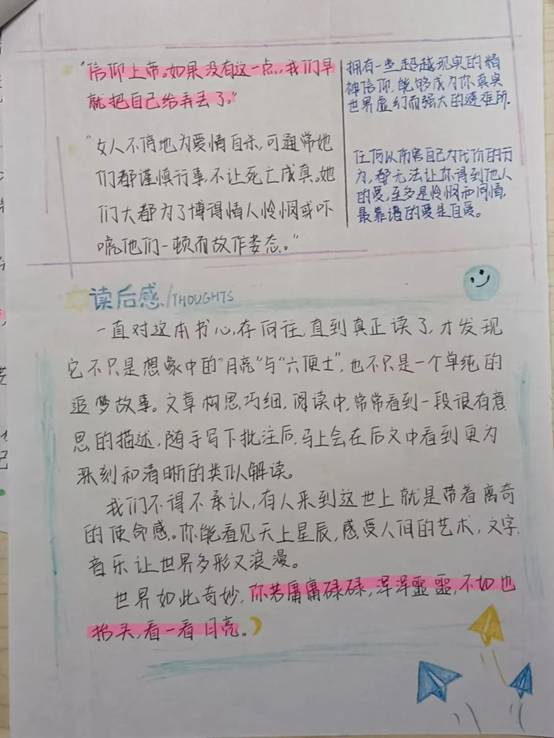 "信仰上帝。如果没有这一点,我们早
就把自己给弄丢了。"
"女人不停地为爱情自杀,可通常她
们都谨慎行事,不让死亡成真。她
们大都为了博得情人怜悯或吓
唬他们一顿而故作姿态。"
拥有一些超越现实的精
神信仰,能够成为你真实
世界虚幻而强大的避难所。
任何以伤害自己为代价的行
为,都无法让你得到他人
的爱,至多是怜悯而同情,
最靠谱的爱是自爱。
读后感/THOUGHTS
一直对这本书心存向往,直到真正读了,才发现
它不只是想象中的"月亮"与"六便士",也不只是一个单纯的
追梦故事。文章构思巧细,阅读中,常常看到一段很有意
思的描述,随手写下批注后,马上会在后文中看到更为
深刻和清晰的类似解读。
我们不得不承认,有人来到这世上就是带着离奇
的使命感。你能看见天上星辰,感受人间的艺术,文字,
音乐让世界多形又浪漫。
世界如此奇妙,你若庸庸碌碌,浑浑噩噩,不如也
抬头,看一看月亮。